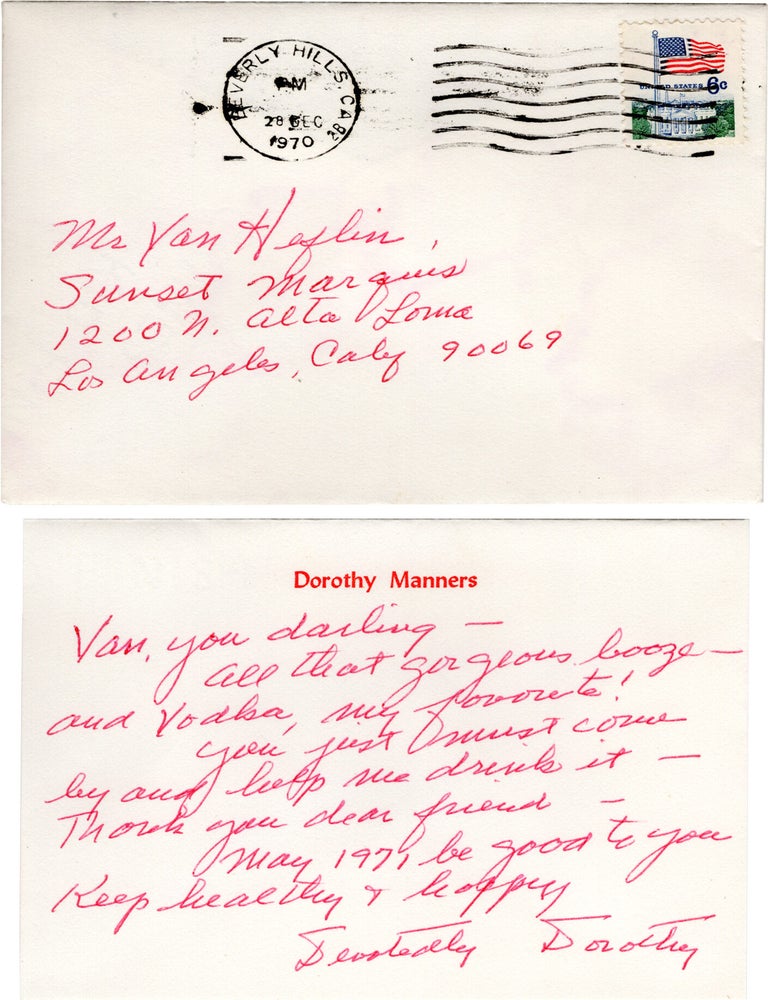 BEVERLY HILLS, CA
PM
28 DEC
1970
UNITED STATES 6c
Mr Van Heflin,
Sunset Marquis
1200 N. Alta Loma
Los Angeles, Calif 90069
Dorothy Manners
Van, you darling —
all that gorgeous booze —
and Vodka, my favorite!
You just must come
by and help me drink it —
Thank you dear friend —
May 1971 be good to you
Keep healthy & happy
Devotedly Dorothy